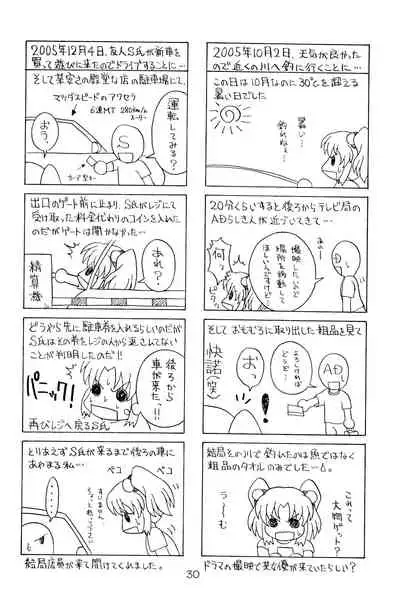 2005年10月2日、天気が良かったので近くの川へ釣に行くことに…
この日は10月なのに30℃を超える
暑い日でした
暑い…
釣れねー…
20分くらいすると後ろからテレビ局の
ADらしき人が近づいてきて…
あのー
撮映したいので
場所を移動して
ほしいんですけど…
何っ
AD
そしておもむろに取り出した粗品を見て
よろしければ
どうぞ…
AD
おっ
快諾(笑)
結局その川で釣れたのは魚ではなく
粗品のタオルのみでした…。
これって
大物ゲット?
う〜む
ドラマの撮映で某女優が来ていたらしい?
2005年12月4日、友人S氏が新車を
買って遊びに来たのでドライブすることに…
そして某空きの殿堂な店の駐車場にて、
マツダスピードのアクセラ
6速MT 280km/h
メーター
運転してみる?
S
おう。
出口のゲート前に止まり、S氏がレジにて
受け取った料金代わりのコインを入れた
のだがゲートは開かなかった…
あれ?
精算機
どうやら先に駐車券を入れるらしいのだが
S氏はその券をレジの人から返さんてない
ことが判明したのだ!!
後ろから
車が来た。!!
パニック!
再びレジへ戻るS氏
とりあえずS氏が来るまで後ろの車に
あやまる私…
ペコ
ペコ
すいません
ちょっと待って下さい
結局店員が来て開けてくれました。
30